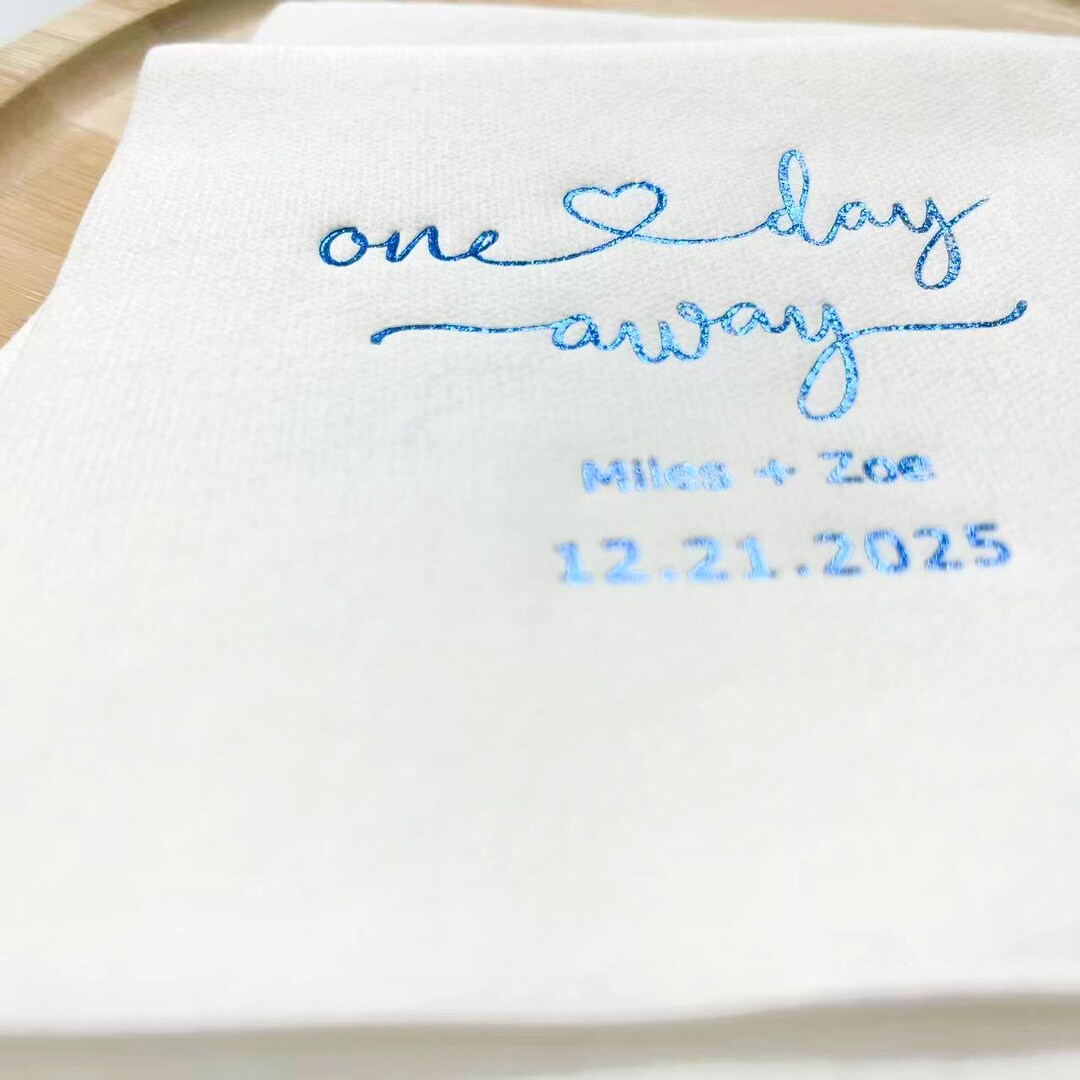 one day
away
Miles + Zoe
12.21.2025